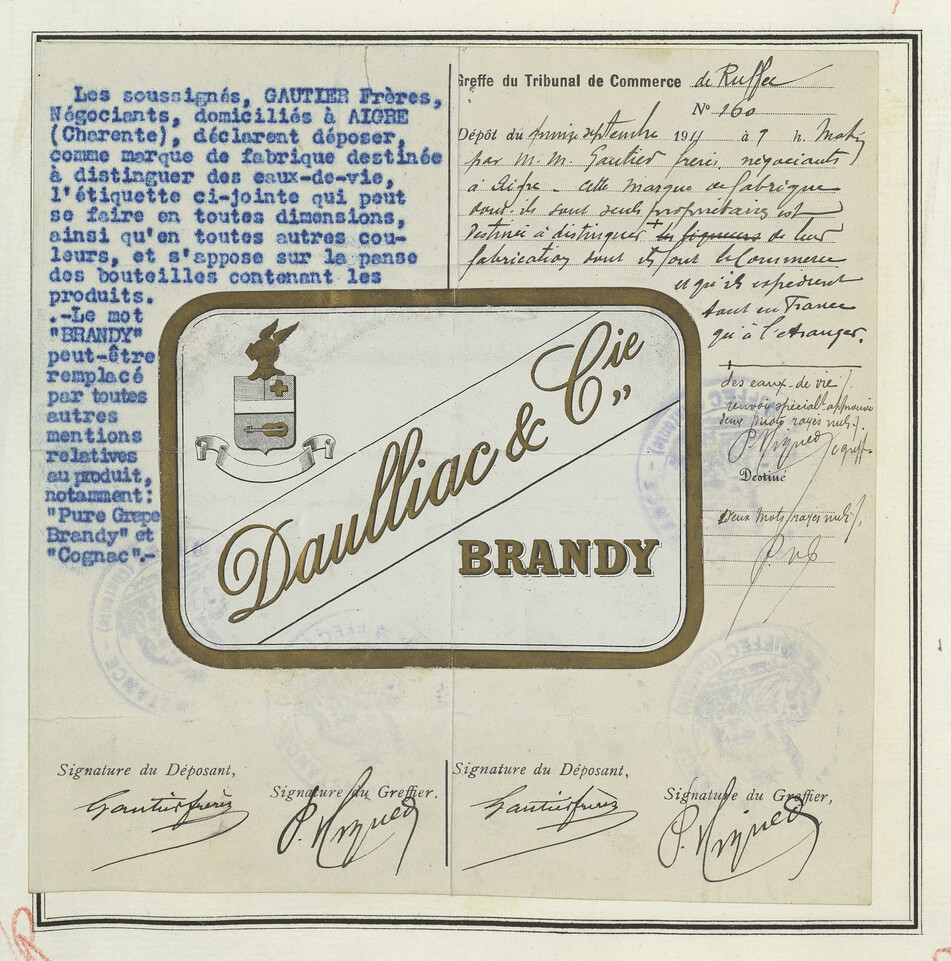 Les soussignés, GAUTIER Frères,
Négociants, domiciliés à AIGRE
(Charente), déclarent déposer,
comme marque de fabrique destinée
à distinguer des eaux-de-vie,
l'étiquette ci-jointe qui peut
se faire en toutes dimensions,
ainsi qu'en toutes autres cou-
leurs, et s'appose sur la panse
des bouteilles contenant les
produits.
.-Le mot
"BRANDY"
peut-être
remplacé
par toutes
autres
mentions
relatives
au produit,
notamment:
"Pure Grape
Brandy" et
"Cognac".-
Greffe du Tribunal de Commerce de Ruffec
N° 160
Dépôt du quinze septembre 191 à 9 h. Matin
par M. M. Gautier frères, négociants
à Aigre - Cette marque de fabrique
dont ils sont seuls propriétaires est
destinée à distinguer les liqueurs de leur
fabrication dont ils font le Commerce
et qu'ils expédient
tant en France
qu'à l'étranger.
des eaux-de-vie
renvoi spécial approuvé
deux mots rayés nuls.
P. Destiné
Deux mots rayés nuls
Daulliac & Cie
BRANDY
Signature du Déposant,
Gautier frères
Signature du Greffier,
Signature du Déposant,
Gautier frères
Signature du Greffier,